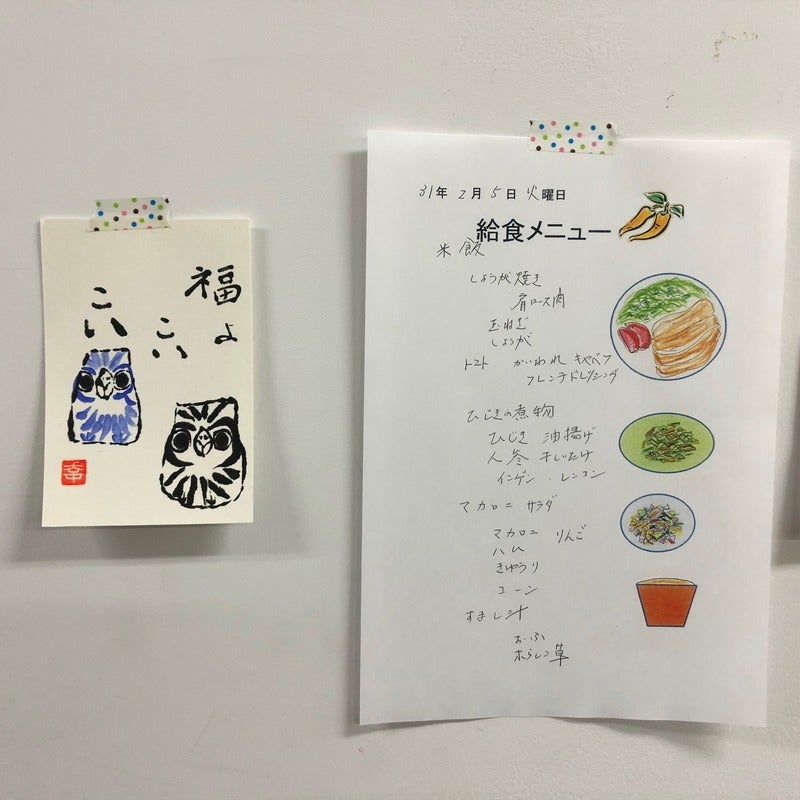 福よ
こい
こい
幸
31年 2月 5日 火曜日
給食メニュー
米飯
しょうが焼き
肩ロース肉
玉ねぎ
しょうが
トマト かいわれ キャベツ
フレンチドレッシング
ひじきの煮物
ひじき 油揚げ
人参 干しいたけ
インゲン . レンコン
マカロニ サラダ
マカロニ りんご
ハム
きゅうり
コーン
すまし汁
おふ
ホウレン草